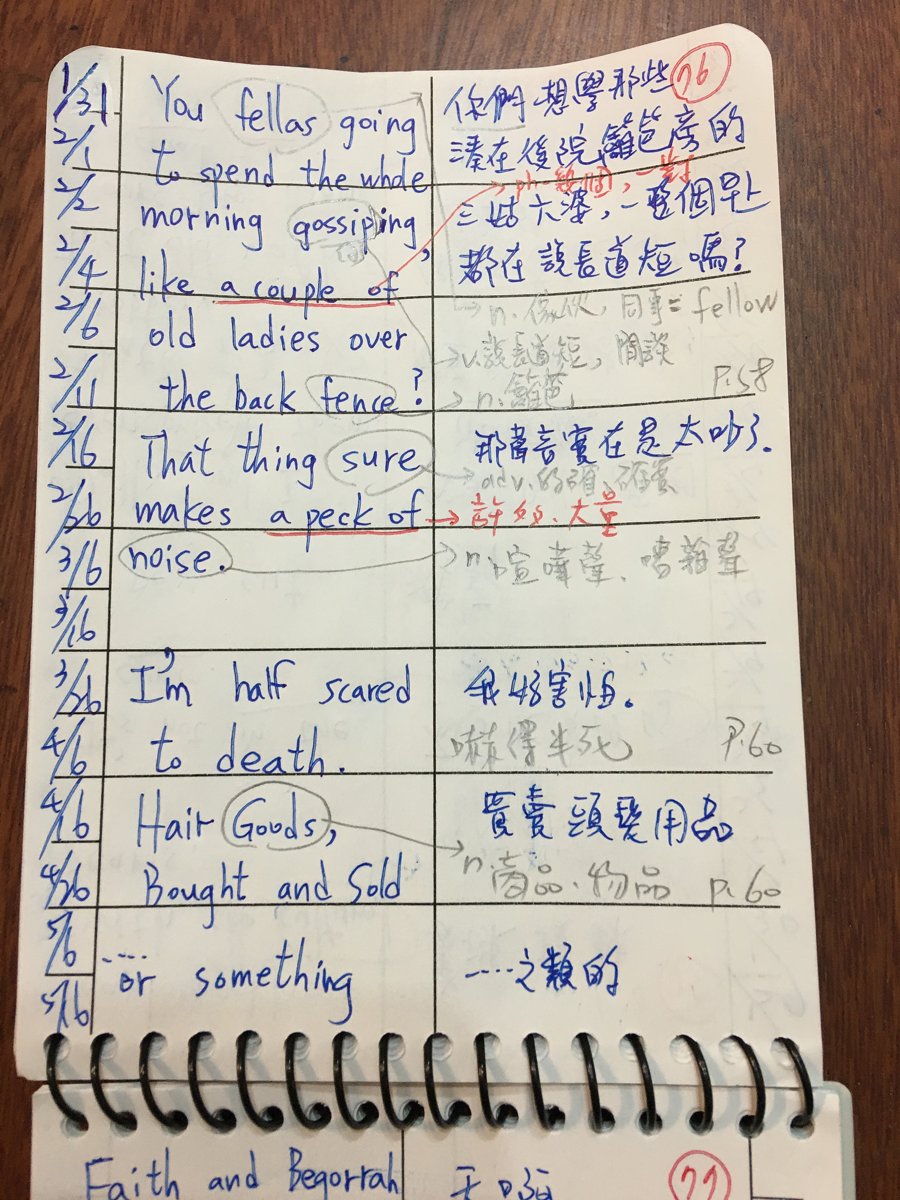 1/31
2/1
2/2
2/4
2/6
2/11
2/16
2/26
3/6
3/16
3/26
4/6
4/16
4/26
5/6
5/16
You fellas going
to spend the whole
morning gossiping
like a couple of
old ladies over
the back fence?
76
你們想學那些
湊在後院籬笆旁的
ph一幾個,一對
三姑六婆,一整個早上
都在說長道短嗎?
n.傢伙,同事= fellow
v.說長道短,閒談
n.籬笆
P.58
That thing sure
makes a peck of
noise.
那聲音實在是太吵了.
adv.的確,確實
許多、大量
n 喧嘩聲、嘈雜聲
I'm half scared
to death.
我好害怕.
嚇得半死
P.60
Hair Goods,
Bought and Sold
買賣頭髮用品
n.商品.物品
p.60
.... or something
....之類的
Faith and Begorrah
天啊
77